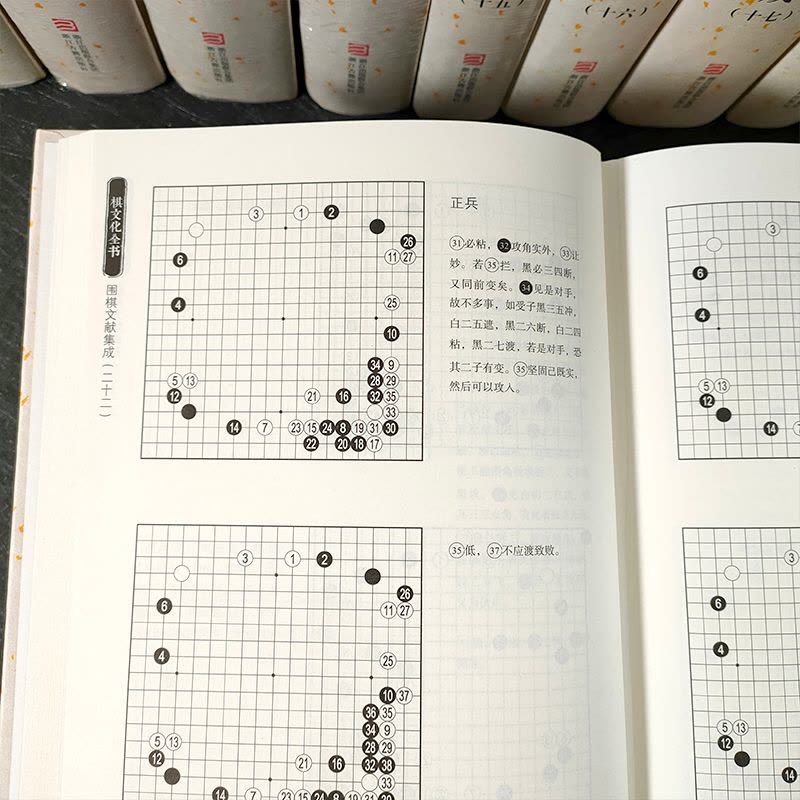 (十五)
(十六)
(十七)
棋文化全书
围棋文献集成(二十二)
3 1 2
26
11 27
6
4 25
10
34 9
5 13 28 29
12 21 16 32 35
33
14 7 23 15 24 8 19 31 30
22 20 18 17
正兵
㉛必粘，㉜攻角实外，㉝让
妙。若㉟拦，黑必三四断，
又同前变矣。㉞见是对手，
故不多事，如受子黑三五冲，
白二五遮，黑二六断，白二四
粘，黑二七渡，若是对手，恐
其二子有变。㉟坚固已既实，
然后可以攻人。
3 1 2
26
6 11 27
4 25
10 37
36 35
34 9
5 13 28 29
12 21 16 32 38
33
14 7 23 15 24 8 19 31 30
㉟低，㊲不应渡致败。
3
6
4
5 13
12
14 7
6
4
5 13
12
14